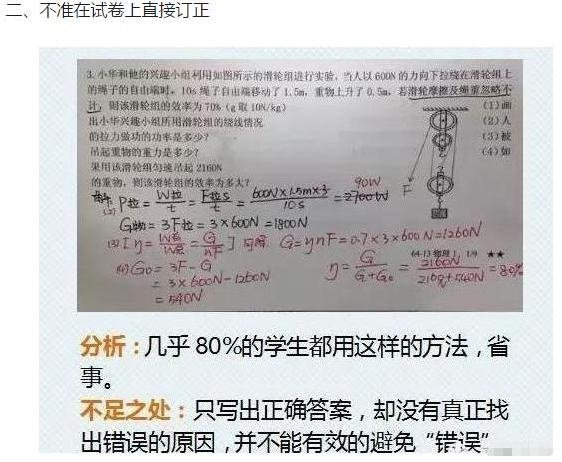 二、不准在试卷上直接订正
3.小华和他的兴趣小组利用如图所示的滑轮组进行实验,当人以600N的力向下拉绕在滑轮组上
的绳子的自由端时,10s绳子自由端移动了1.5m,重物上升了0.5m,若滑轮摩擦及绳重忽略不
计,则该滑轮组的效率为70%(g取10N/kg)
(1)画
出小华兴趣小组所用滑轮组的绕线情况
(2)人
的拉力做功的功率是多少?
(3)被
吊起重物的重力是多少?
(4)如
果用该滑轮组匀速吊起2160N
的重物,则该滑轮组的效率为多大?
F
90W
(2) P拉=W拉/t=F拉s/t=600N×1.5m×3/10s=2700W
G物=3F拉=3×600N=1800N
(3)[η=W有/W总=G/nF]可得 G=ηnF=0.7×3×600N=1260N
64-13 物理 1/9 ★★
(4)G0=3F-G
=3×600N-1260N
=540N
η=G/G+G0=2160N/2160+540N=80%
分析:几乎80%的学生都用这样的方法,省
事。
不足之处:只写出正确答案,却没有真正找
出错误的原因,并不能有效的避免“错误”